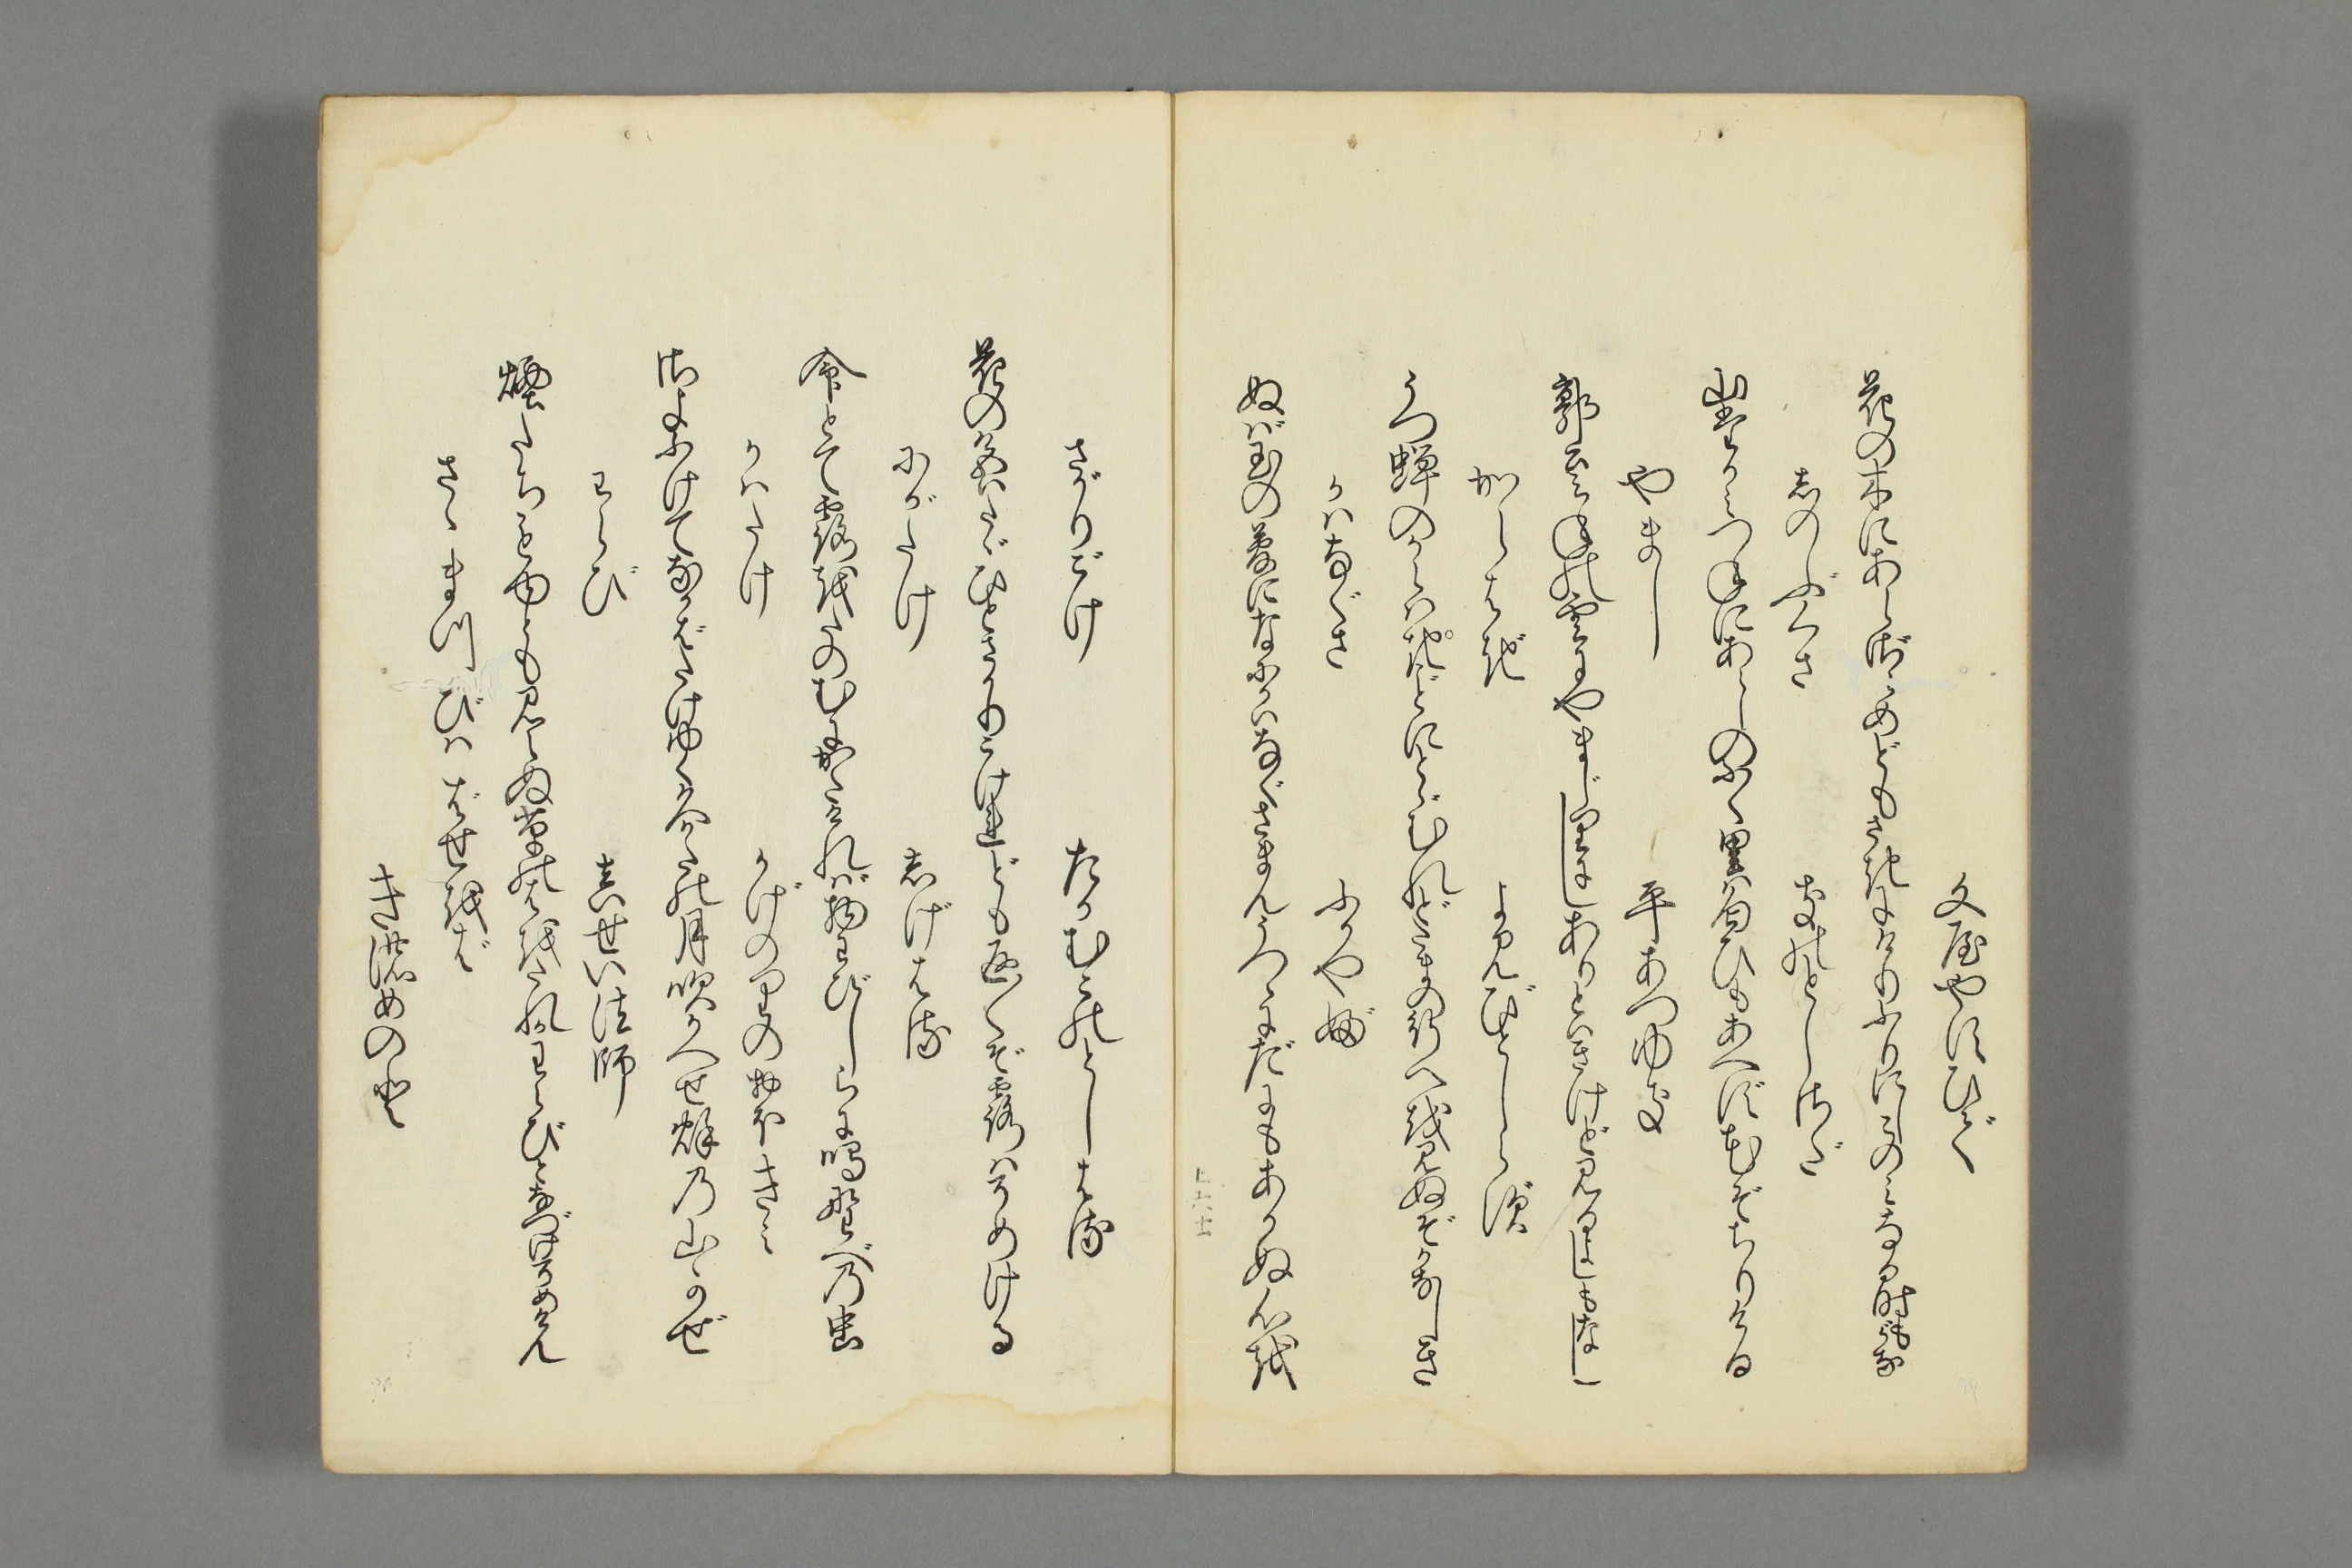 文屋やすひで
花の木にあらざらめどもさきにけりふりにしこのみなる時もがな
しのぶぐさ
きのとしさだ
山たかみつねにあらしのふく里は匂ひもあへず花ぞちりける
やまし
平あつゆき
郭公みねの雲にやまじりにしありとはきけど見るよしもなし
からはぎ
よみびとしらず
うつ蝉のからは木ごとにとどむれどたまの行へを見ぬぞかなしき
かはなぐさ
ふかやぶ
ぬば玉の夢になにかはなぐさまんうつゝにだにもあかぬ心を
さがりごけ
たかむこのとしはる
花の色はたゞひとさかりこけれども返々ぞ露はそめける
にがたけ
しげはる
命とて露をたのむにかたければ物わびしらに鳴野べの虫
かはたけ
かげのりのおほきみ
さよふけてなかばたけゆく久かたの月吹かへせ秋の山かぜ
わらび
真せい法師
煙たちもゆとも見えぬ草のはをたれかわらびとなづけそめけん
さゝ まつ びは ばせをば
きのめのと